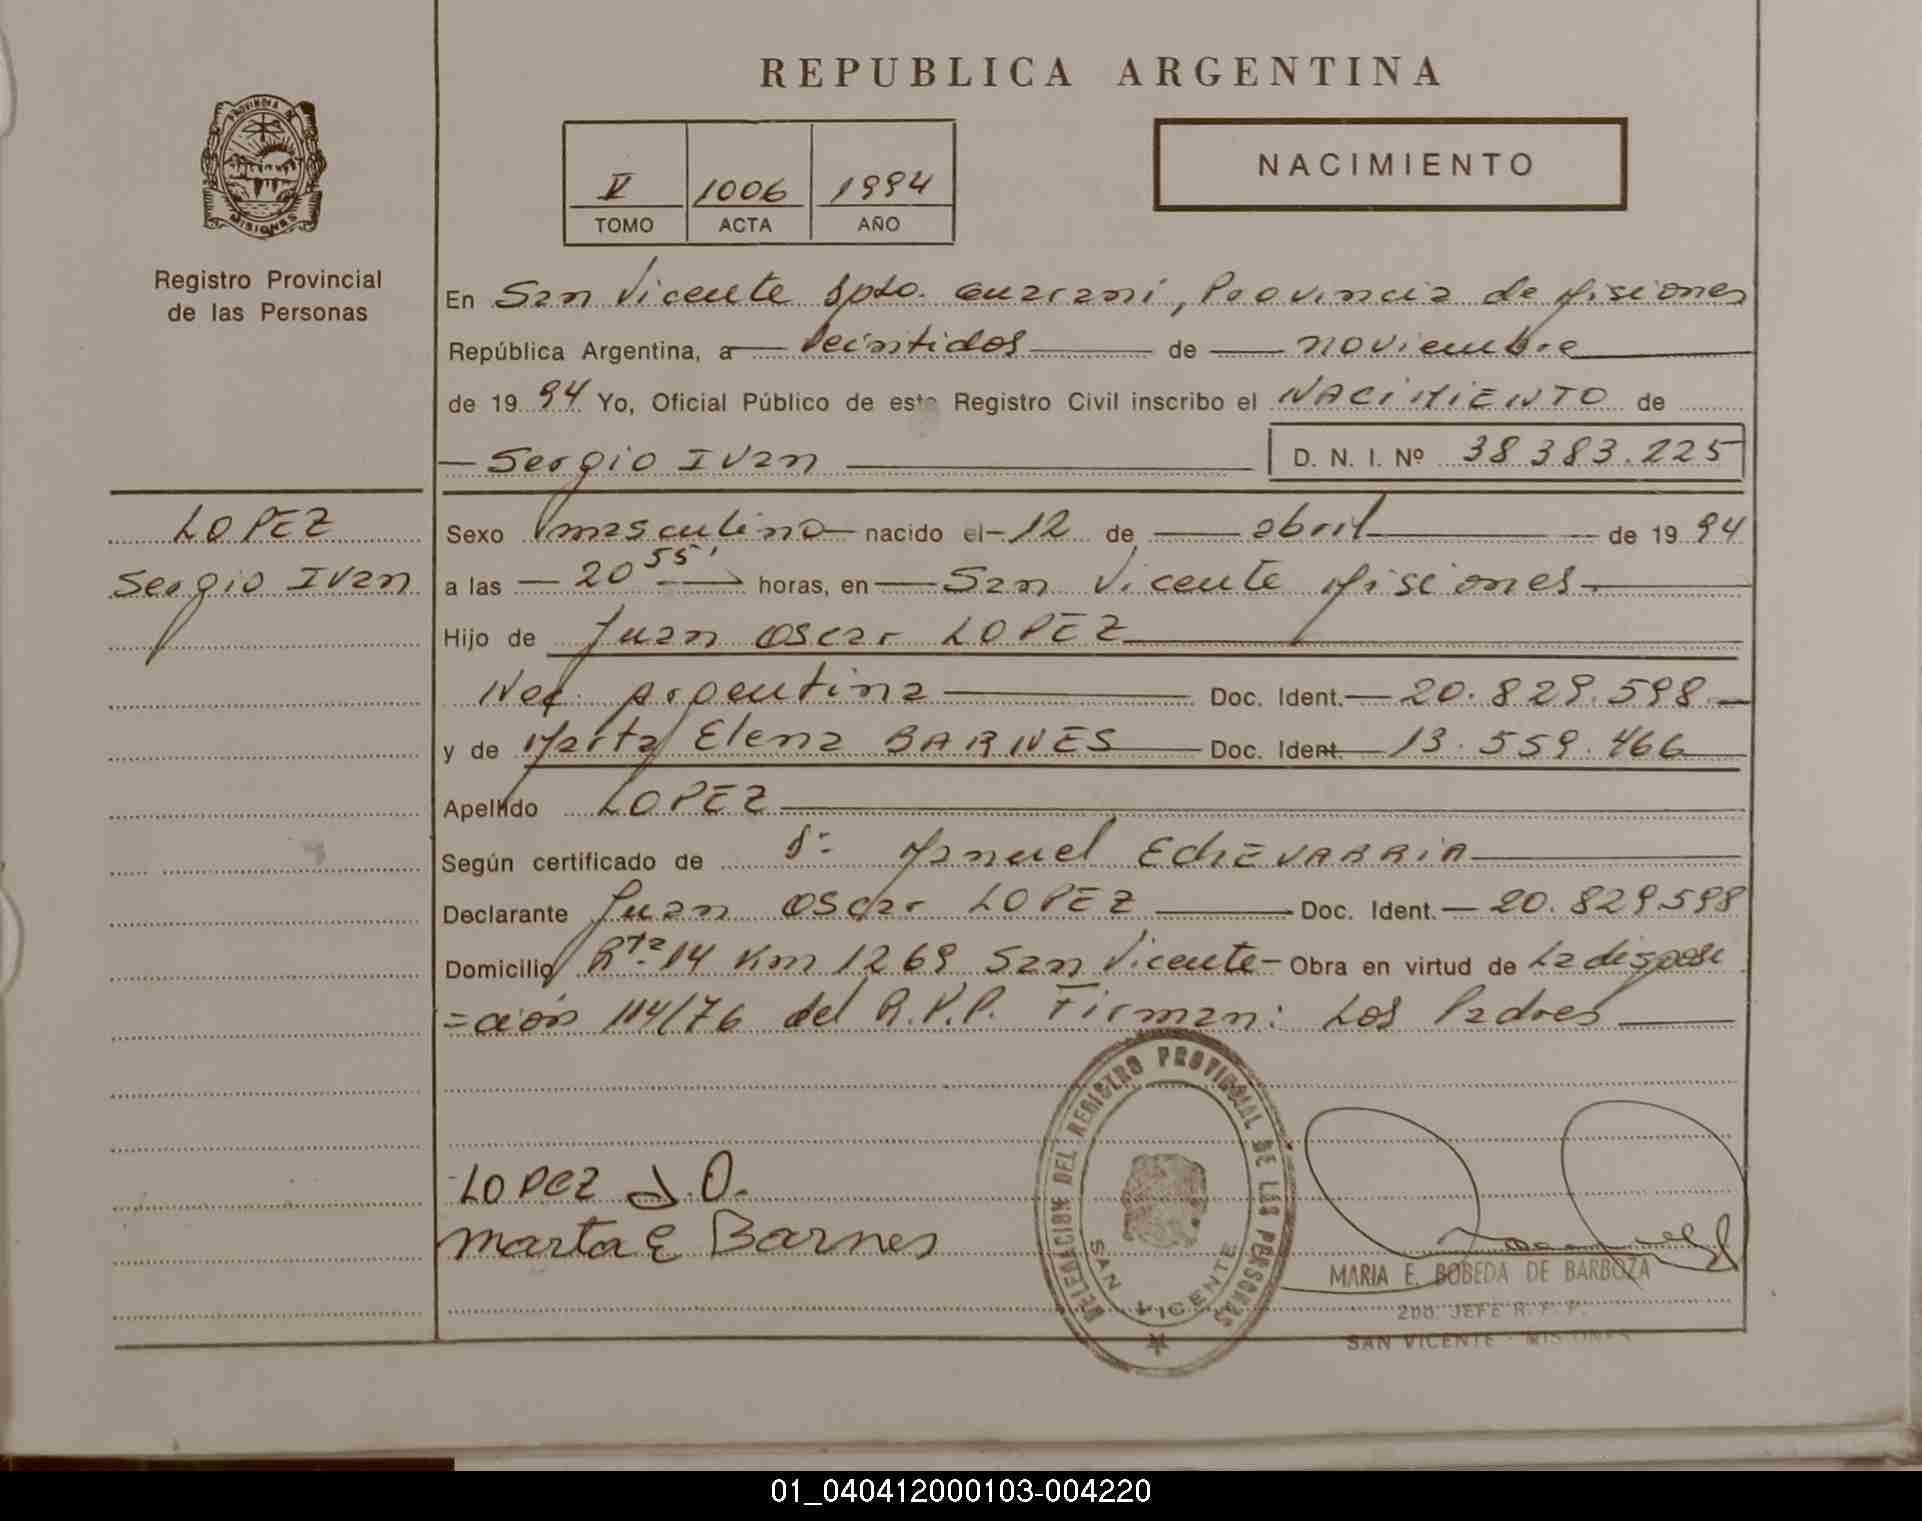 PROVINCIA DE
MISIONES
Registro Provincial
de las Personas
LOPEZ
Sergio Ivan
REPUBLICA ARGENTINA
V 1006 1994
TOMO ACTA AÑO
NACIMIENTO
En San Vicente Dpto. Guarani, Provincia de Misiones
República Argentina, a Veintidos de noviembre
de 1994 Yo, Oficial Público de este Registro Civil inscribo el NACIMIENTO de
Sergio Ivan D. N. I. Nº 38 383.225
Sexo masculino nacido el 12 de abril de 1994
a las 20 55' horas, en San Vicente Misiones
Hijo de Juan Oscar LOPEZ
Nac. Argentina Doc. Ident. 20.829.598
y de Marta Elena BARNES Doc. Ident. 13.559.466
Apellido LOPEZ
Según certificado de Dr. Manuel ECHEVARRIA
Declarante Juan Oscar LOPEZ Doc. Ident. 20.829.598
Domicilio Rta. 14 Km 1269 San Vicente Obra en virtud de La disposi
=ción 114/76 del R.P.P. Firman: Los Padres
LOPEZ J.O.
Marta E Barnes
DELEGACION DEL REGISTRO PROVINCIAL DE LAS PERSONAS
SAN VICENTE
MARIA E. BOBEDA DE BARBOZA
2DO. JEFE R. P. P.
SAN VICENTE - MISIONES
01_040412000103-004220